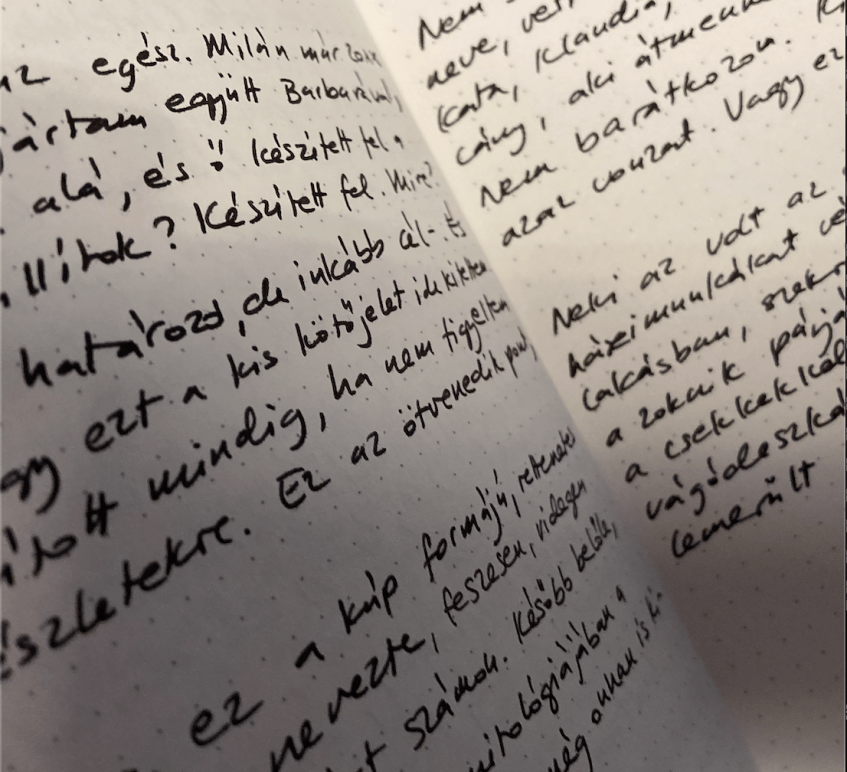 az egész. Milán már
jártam együtt Barbarával,
alá, és ő készített fel a
llítok? Készített fel. Mire?
határozó, de inkább cél-. És
egy ezt a kis kötőjelet ide kitettem
mindig, ha nem figyeltem
észletekre. Ez az ötvenedik pont,
ez a kúp formájú, rettenetes
nevezte, feszesen, ridegen
számon. Később belőle,
mitológiájában a
még onnan is ki-
Nem
neve, ver
Kata, Klaudia,
cány, aki átmenn
Nem barátkozom.
azaz vonzat. Vagy ez
Neki az volt az
házimunkákat vé
lakásban, szek
a zoknik párjá
a csekkekkel
vágódeszká
lemerült